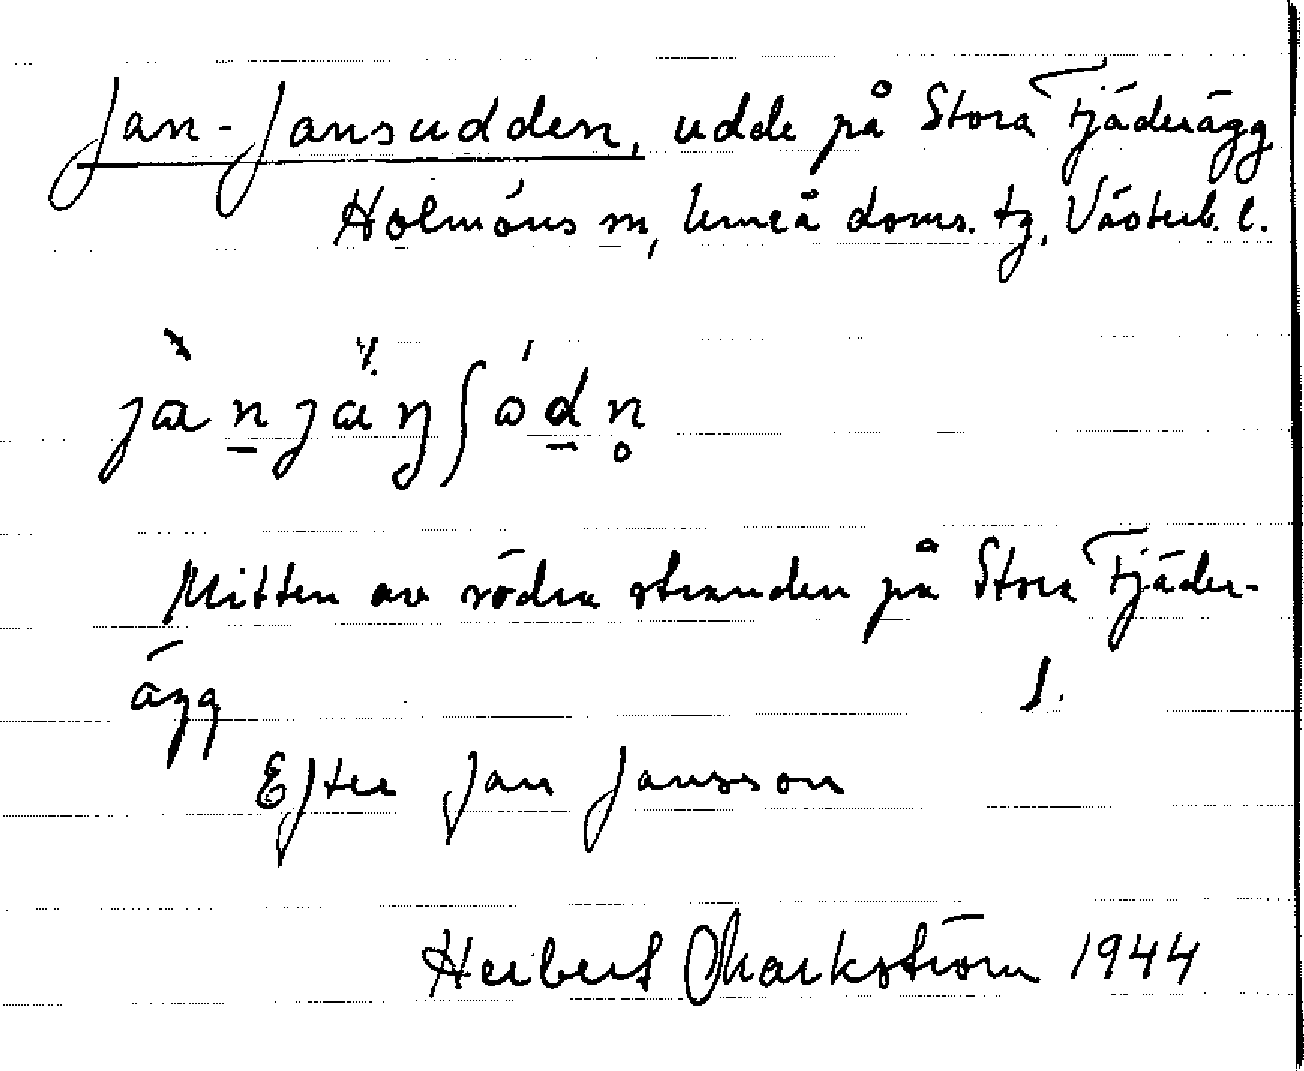 Jan-Jansudden, udde på Stora Fjäderägg
Holmöns sn, Umeå doms. tg, Västerb. l.
Mitten av södra stranden på Stora Fjäder-
ägg
Efter Jan Jansson
Herbert Markström 1944